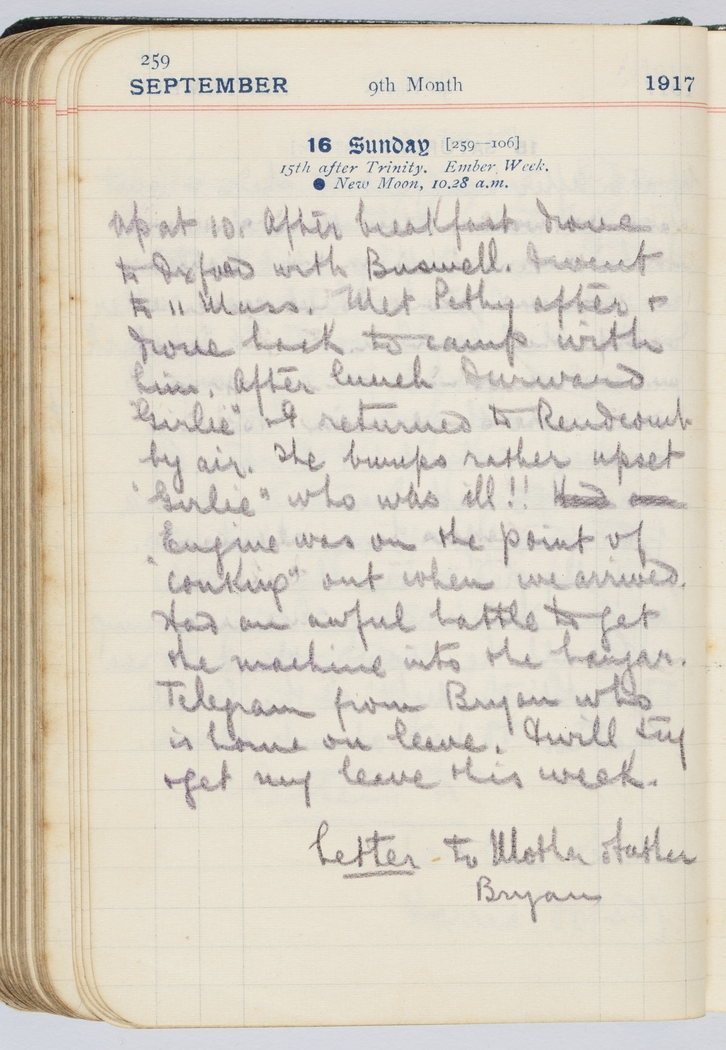 259
SEPTEMBER 9th Month 1917
16 Sunday [259—106]
15th after Trinity. Ember Week.
● New Moon, 10.28 a.m.
Up at 10. After breakfast drove
to Oxford with Buswell. I went
to 11 Mass. Met Pethy after &
drove back to camp with
him. After lunch Durward
"Girlie" & I returned to Rendcomb
by air. The bumps rather upset
"Girlie" who was ill!! Had an
Engine was on the point of
"conking" out when we arrived.
Had an awful battle to get
the machine into the hangar.
Telegram from Bryan who
is home on leave. I will try
& get my leave this week.
Letter to Mother & Father
Bryan